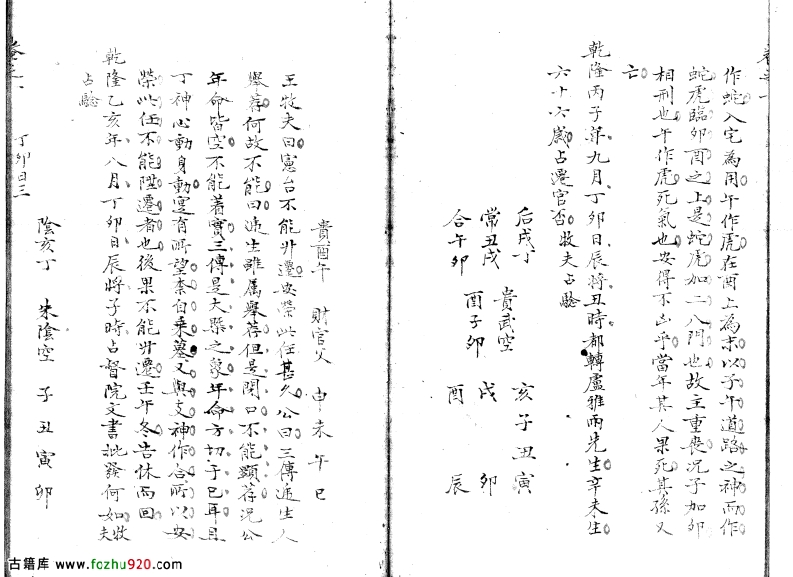 作蛇入宅為用午作虎在酉上為末以子午道路之神而作
蛇虎臨卯酉之上是蛇虎加二八門也故主重喪况子加卯
相刑也午作虎死氣也安得不凶乎當年其人果死其孫又
亡
乾隆丙子年九月丁卯日辰將丑時都轉盧雅雨先生辛未生
六十六歲占遷官否 牧夫占驗
后戌丁 貴武空 亥子丑寅
常丑戌 酉子卯 戌 卯
合午卯 酉 辰
貴酉午 財官父 申未午巳
王牧夫曰憲台不能升遷安榮此任甚久公曰三傳遞生人
舉荐何故不能曰遞生雖属舉荐但是閉口不能顯荐况公
年命皆空不能着實三傳是大概之象年命方切于己耳且
丁神心動身動寔有所望柰自乘墓又與支神作合所以安
榮此任不能陞遷者也後果不能升遷壬午冬告休而回
乾隆乙亥年八月丁卯日辰將子時占督院文書批發何如 牧夫
占驗
陰亥丁 朱陰空 子丑寅卯
卷之一
丁卯日三
古籍库 www.fozhu920.com